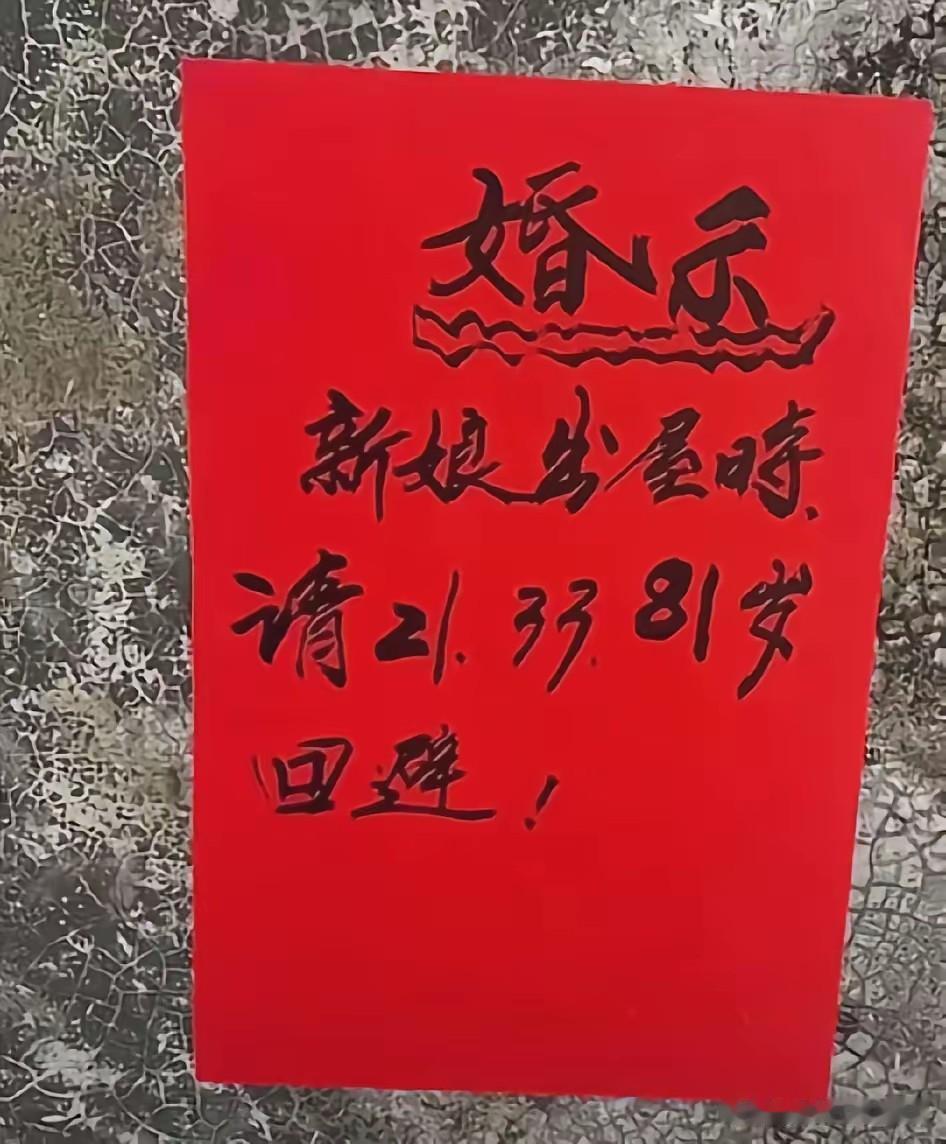 婚示
新娘出屋時.
请21.33.81岁
回避!